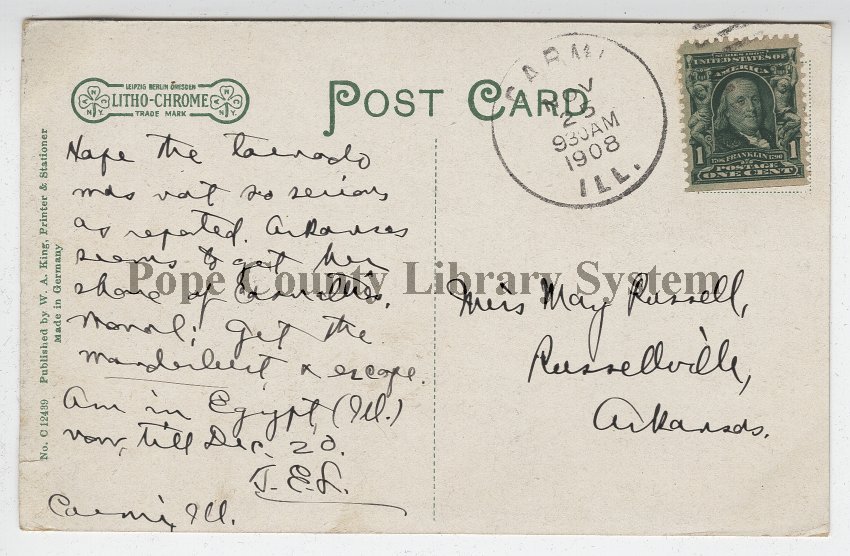 LEIPZIG BERLIN DRESDEN
LITHO-CHROME
TRADE MARK
N.Y. N.Y.
POST CARD
CARMI
NOV
25
930AM
1908
ILL.
SERIES 1902
UNITED STATES OF
AMERICA
1 1790 FRANKLIN 1790 1
POSTAGE
ONE CENT
No. C 12439 Published by W. A. King, Printer & Stationer
Made in Germany
Hope the tornado
was not so serious
as reported. Arkansas
seems to get her
share of Casualties.
Moral; get the
wanderlust & escape.
Am in Egypt, (Ill.)
now, till Dec. 20.
J.E.L.
Carmi, Ill.
Miss May Russell,
Russellville,
Arkansas.
Pope County Library System